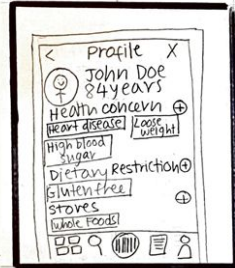 < Profile X
John Doe
84 years
Health concern +
Heart disease Loose weight
High blood sugar
Dietary Restriction +
Gluten free
+
Stores
Whole Foods